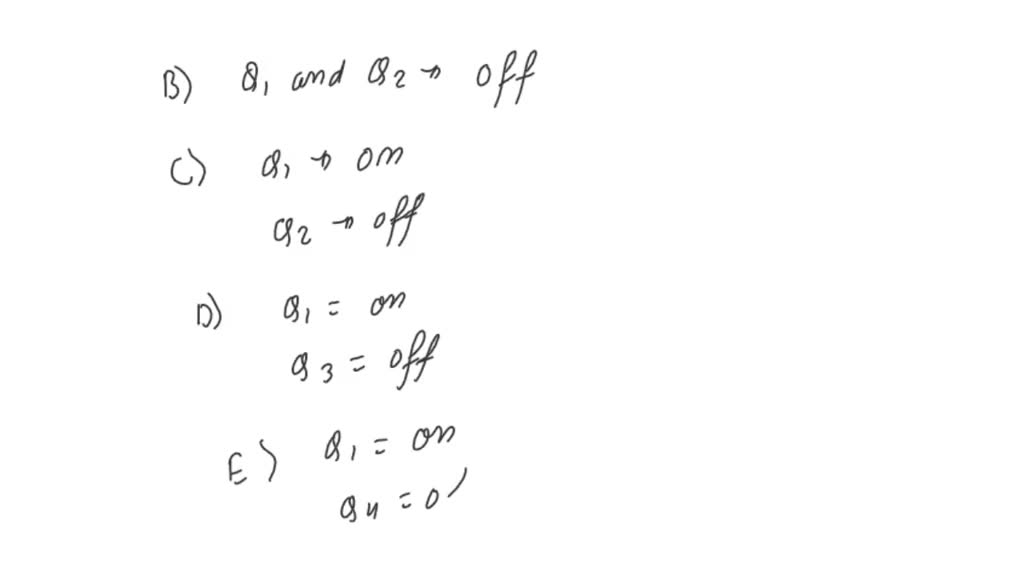 B) Q1 and Q2 → off
C) Q1 → on
Q2 → off
D) Q1 = on
Q3 = off
E) Q1 = on
Q4 = o